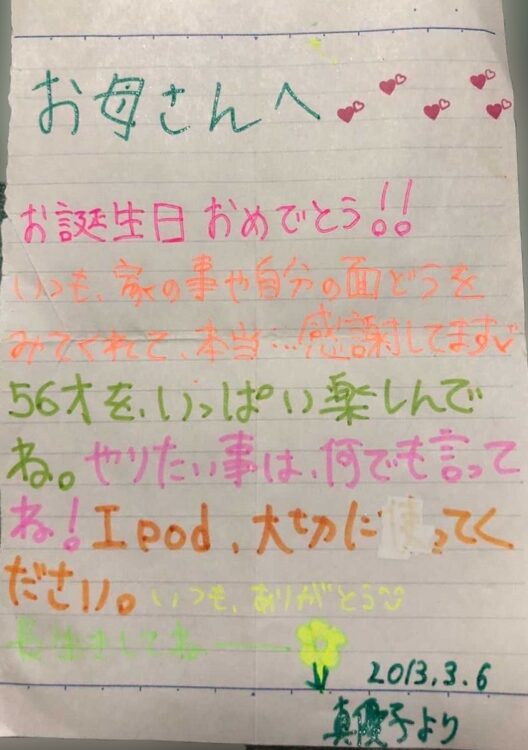 お母さんへ
お誕生日 おめでとう!!
いつも、家の事や自分の面どうを
みてくれて、本当…感謝してます
56才を、いっぱい楽しんで
ね。やりたい事は、何でも言って
ね! Ipod、大切に使ってく
ださい。いつも、ありがとう
長生きしてね
2013.3.6
真優子より